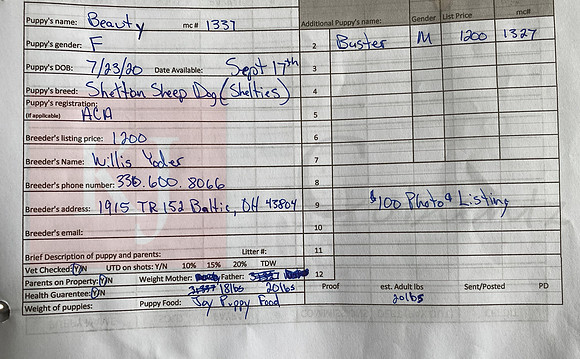 Puppy's name: Beauty mc# 1331
Puppy's gender: F
Puppy's DOB: 7/23/20 Date Available: Sept 17th
Puppy's breed: Shetton Sheep Dog (Shelties)
Puppy's registration:
(if applicable) ACA
Breeder's listing price: 1200
Breeder's Name: Willis Yoder
Breeder's phone number: 330.600.8066
Breeder's address: 1915 TR 152 Baltic, OH 43804
Breeder's email:
Brief Description of puppy and parents: Litter#:
Vet Checked: Y/N UTD on shots: Y/N 10% 15% 20% TDW
Parents on Property: Y/N Weight Mother: Father:
Health Guarentee: Y/N 18lbs 20lbs
Weight of puppies: Puppy Food: Joy Puppy Food
Additional Puppy's name: Gender List Price mc#
2 Buster M 1200 1327
3
4
5
6
7
8
9 $100 Photo & Listing
10
11
12
Proof est. Adult lbs Sent/Posted PD
20lbs